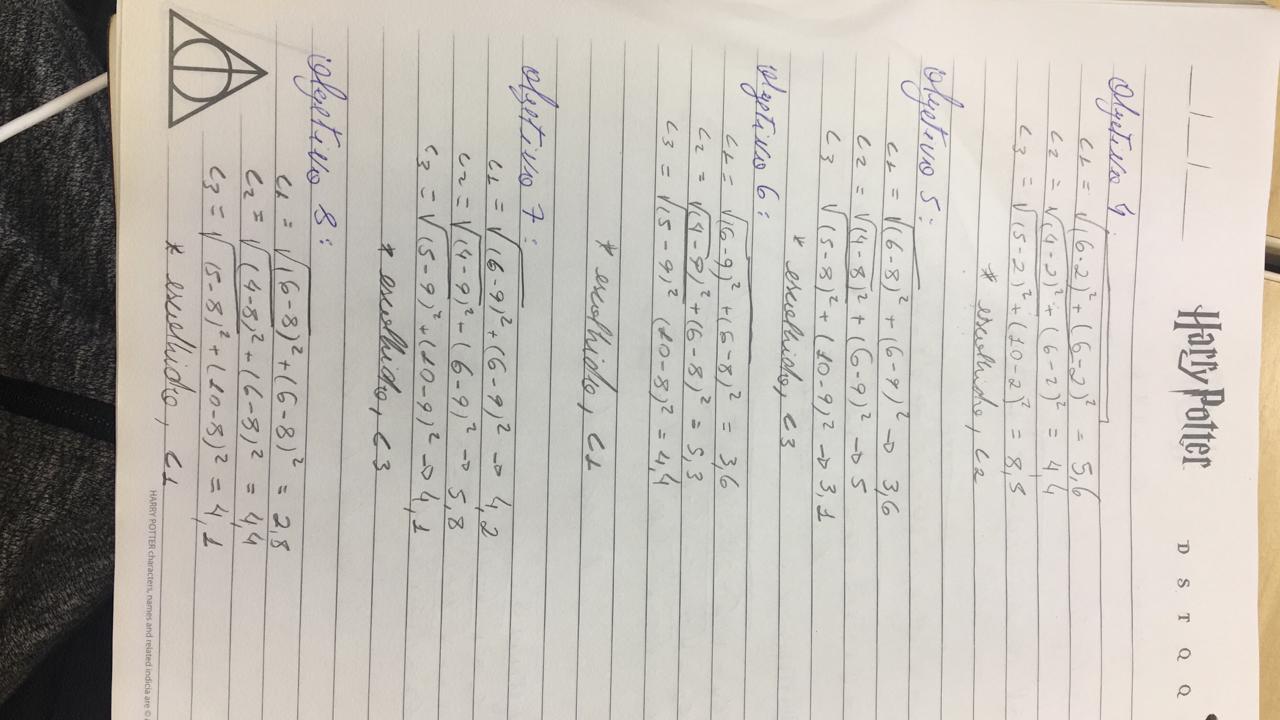 __/__/__
Harry Potter
D S T Q Q
Objetivo 4
C1 = √(6-2)² + (6-2)² = 5,6
C2 = √(4-2)² + (6-2)² = 4,4
C3 = √(5-2)² + (10-2)² = 8,5
* escolhido, C2
Objetivo 5:
C1 = √(6-8)² + (6-9)² → 3,6
C2 = √(4-8)² + (6-9)² → 5
C3 √(5-8)² + (10-9)² → 3,1
* escolhido, C3
Objetivo 6:
C1 = √(6-9)² + (6-8)² = 3,6
C2 = √(4-9)² + (6-8)² = 5,3
C3 = √(5-9)² (10-8)² = 4,4
* escolhido, C1
Objetivo 7:
C1 = √(6-9)² + (6-9)² → 4,2
C2 = √(4-9)² + (6-9)² → 5,8
C3 = √(5-9)² + (10-9)² → 4,1
* escolhido, C3
Objetivo 8:
C1 = √(6-8)² + (6-8)² = 2,8
C2 = √(4-8)² + (6-8)² = 4,4
C3 = √(5-8)² + (10-8)² = 4,1
* escolhido, C1
HARRY POTTER characters, names and related indicia are ©